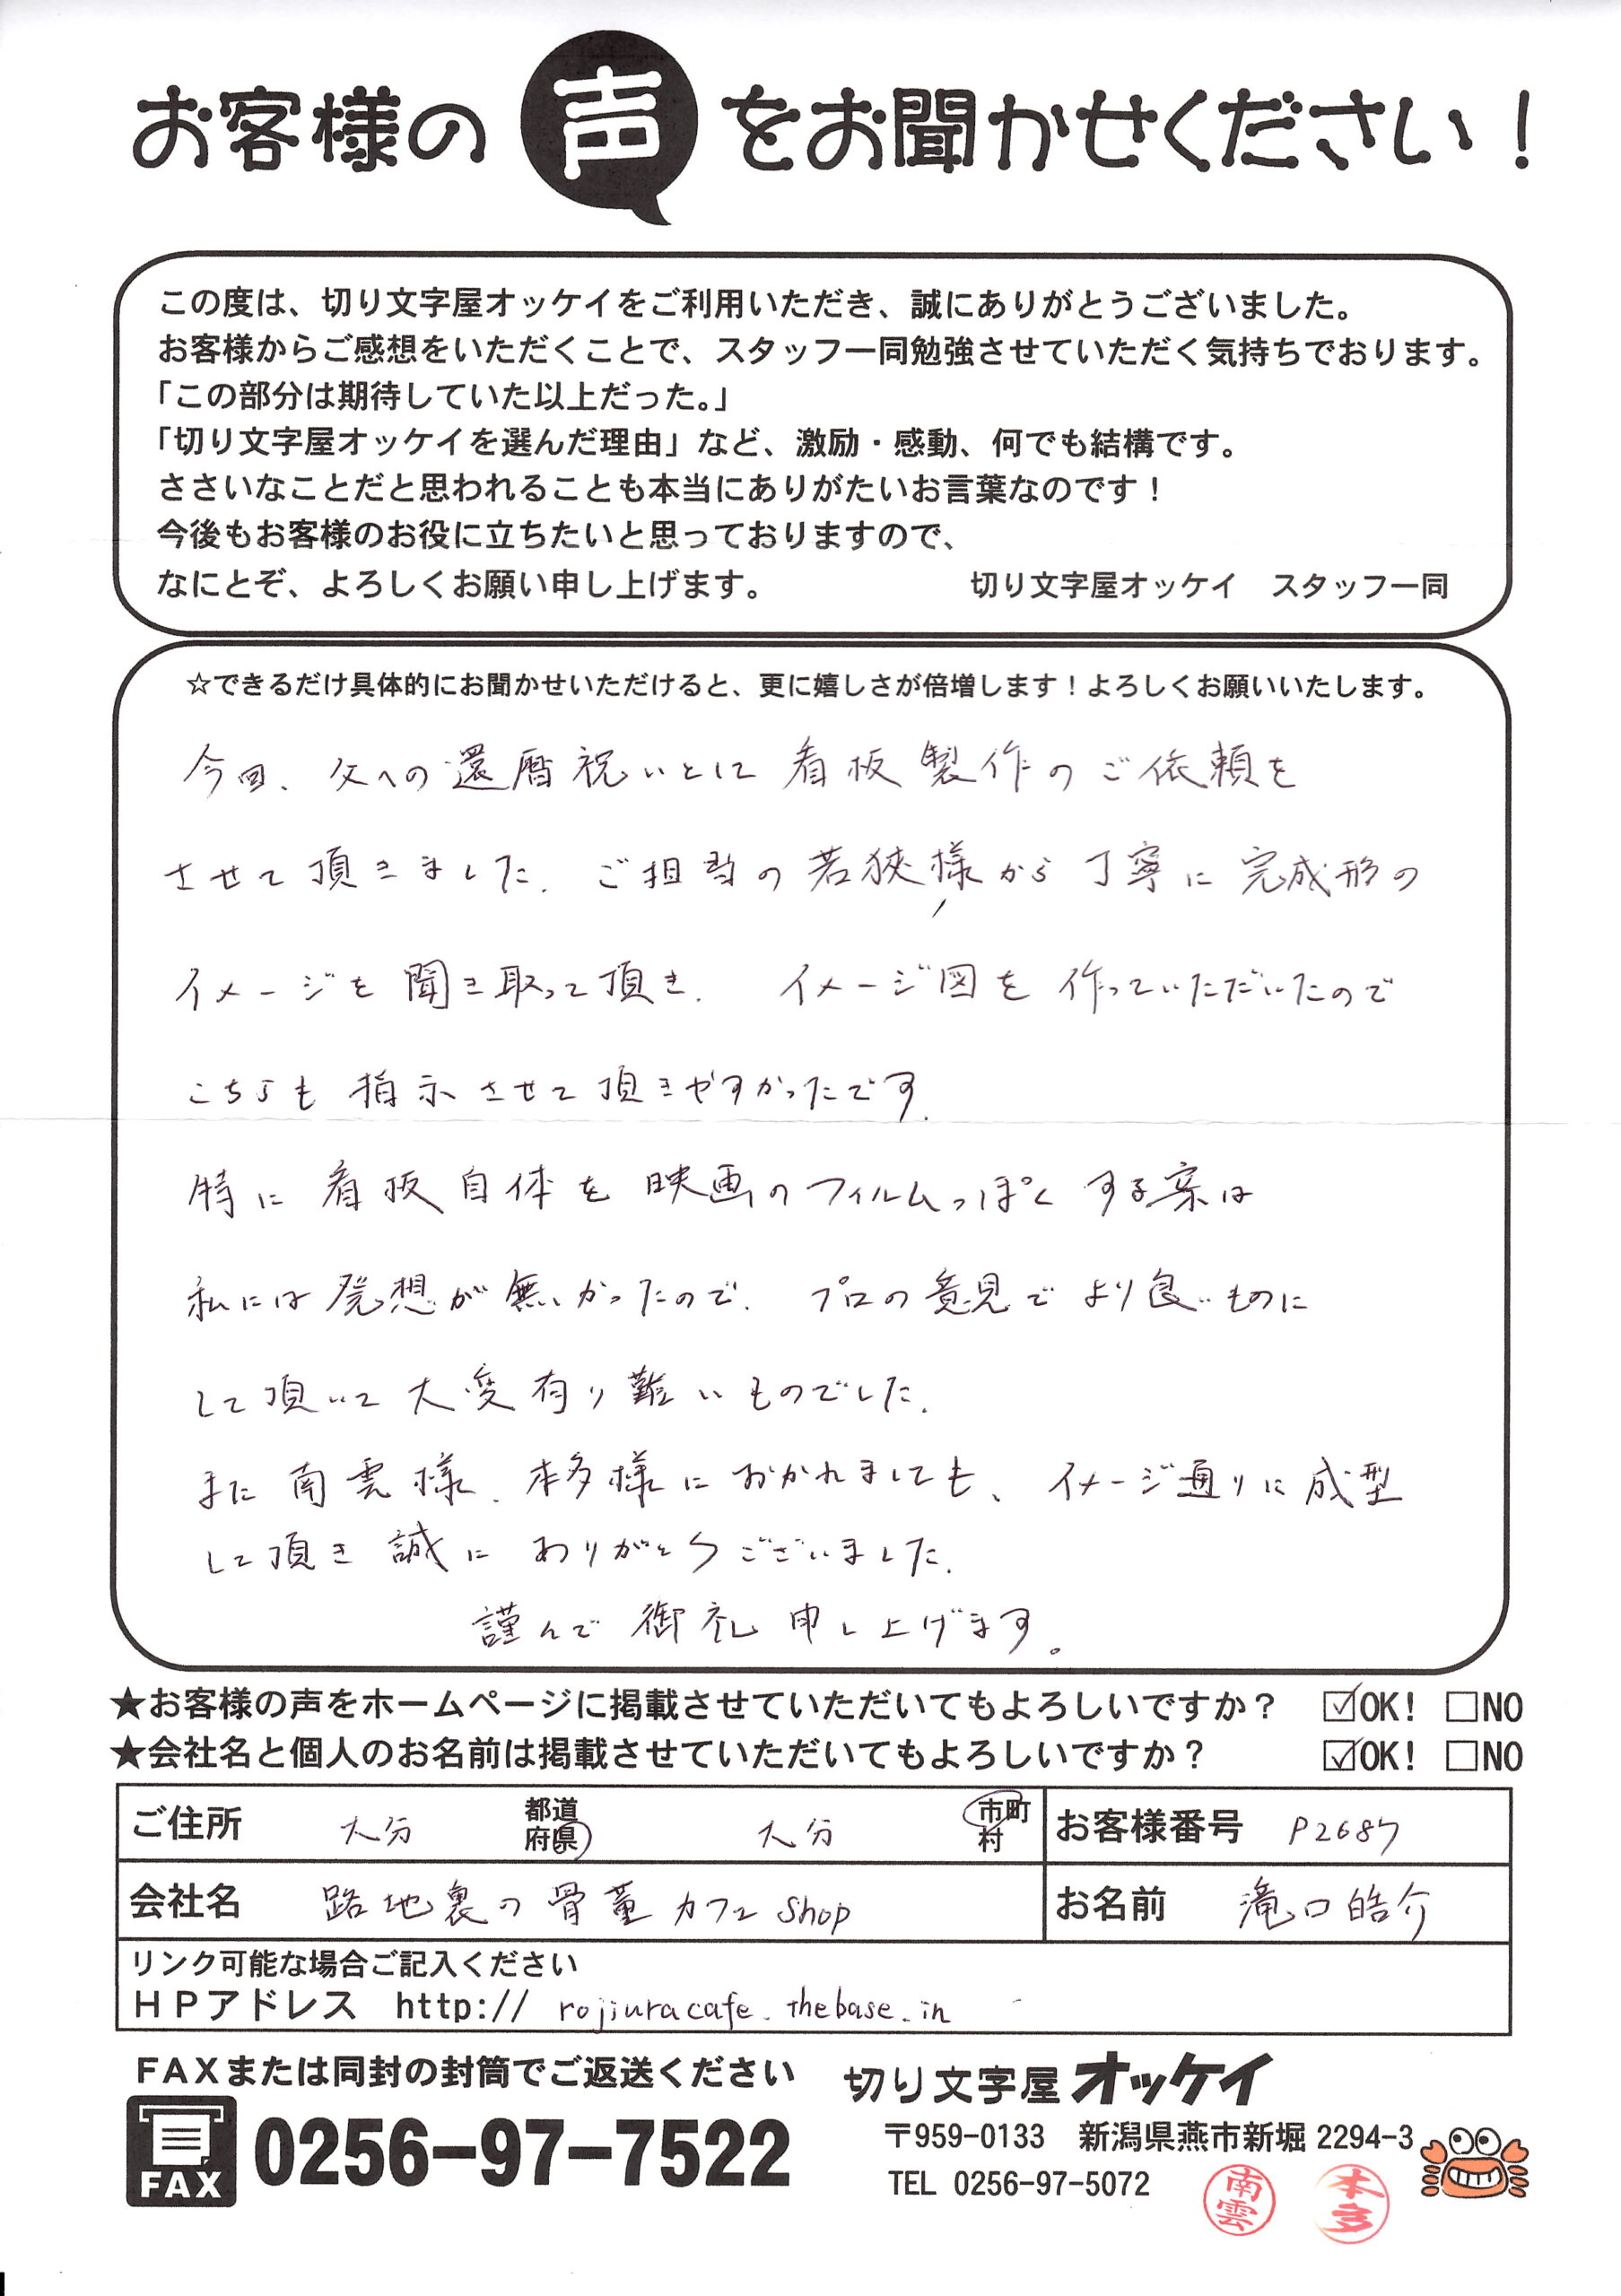 お客様の声をお聞かせください！
この度は、切り文字屋オッケイをご利用いただき、誠にありがとうございました。
お客様からご感想をいただくことで、スタッフ一同勉強させていただく気持ちでおります。
「この部分は期待していた以上だった。」
「切り文字屋オッケイを選んだ理由」など、激励・感動、何でも結構です。
ささいなことだと思われることも本当にありがたいお言葉なのです！
今後もお客様のお役に立ちたいと思っておりますので、
なにとぞ、よろしくお願い申し上げます。　切り文字屋オッケイ　スタッフ一同
☆できるだけ具体的にお聞かせいただけると、更に嬉しさが倍増します！よろしくお願いいたします。
今回、父への還暦祝いとして看板製作のご依頼を
させて頂きました。ご担当の若狭様から丁寧に完成形の
イメージを聞き取って頂き、イメージ図を作っていただいたので
こちらも指示させて頂きやすかったです。
特に看板自体を映画のフィルムっぽくする案は
私には発想が無かったので、プロの意見でより良いものに
して頂いて大変有り難いものでした。
また南雲様、本多様におかれましても、イメージ通りに成型
して頂き誠にありがとうございました。
謹んで御礼申し上げます。
★お客様の声をホームページに掲載させていただいてもよろしいですか？　☑OK!　□NO
★会社名と個人のお名前は掲載させていただいてもよろしいですか？　☑OK!　□NO
ご住所　大分　都道府県　大分　市町村　お客様番号　P2687
会社名　路地裏の骨董カフェshop　お名前　滝口皓介
リンク可能な場合ご記入ください
ＨＰアドレス　http://rojiuracafe.thebase.in
ＦＡＸまたは同封の封筒でご返送ください
FAX　0256-97-7522
切り文字屋オッケイ
〒959-0133　新潟県燕市新堀2294-3
TEL 0256-97-5072
南雲　本多